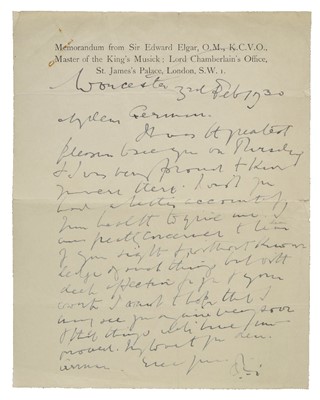 Memorandum from Sir Edward Elgar, O.M., K.C.V.O.,
Master of the King's Musick: Lord Chamberlain's Office,
St. James's Palace, London, S.W. 1.
Worcester 3rd Feb 1930
My dear German.
It was the greatest
pleasure to see you on Thursday
& I was very proud to know
you were there. I wish you
had a better account of
your health to give me. I
am greatly concerned to hear
of your sight
but with
deep affection for you & your
work I want to hope that I
may see you again very soon
& that things will be
proved. My love to you dear
German. Ever yours